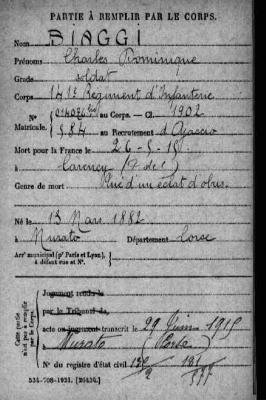 PARTIE À REMPLIR PAR LE CORPS.
Nom BIAGGI
Prénoms Charles Dominique
Grade soldat
Corps 141e Régiment d'Infanterie
N° au Corps. — Cl. 1902
Matricule. 584 au Recrutement d'Ajaccio
Mort pour la France le 26-5-15
à Carency (P de C)
Genre de mort Tué d'un éclat d'obus.
Né le 13 Mars 1882
à Murato Département Corse
Arrt municipal (pr Paris et Lyon), à défaut rue et N°.
Cette partie n'est pas à remplir par le Corps.
Jugement rendu le
par le Tribunal de
acte ou jugement transcrit le 29 Juin 1915
à Murato (Corse)
N° du registre d'état civil
534-708-1921. [26434.]